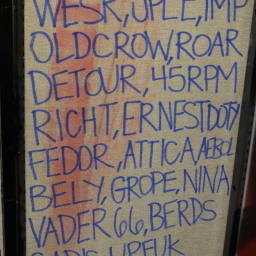 WESR, JPLE, IMP
OLDCROW, ROAR
DETOUR, 45RPM
RICHT, ERNESTDOTY
FEDOR, ATTICA,
BELY, GROPE, NINA,
VADER 66, BERDS